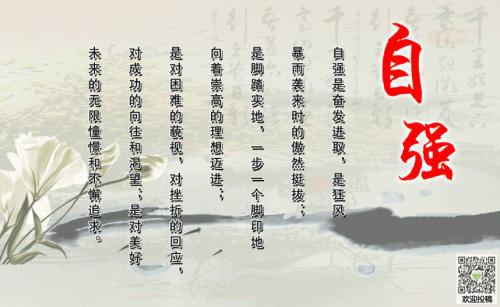 自强
自强是奋发进取，是狂风
暴雨袭来时的傲然挺拔；
是脚踏实地，一步一个脚印地
向着崇高的理想迈进；
是对困难的藐视，对挫折的回应，
对成功的向往和渴望；是对美好
未来的无限憧憬和不懈追求。
欢迎投稿